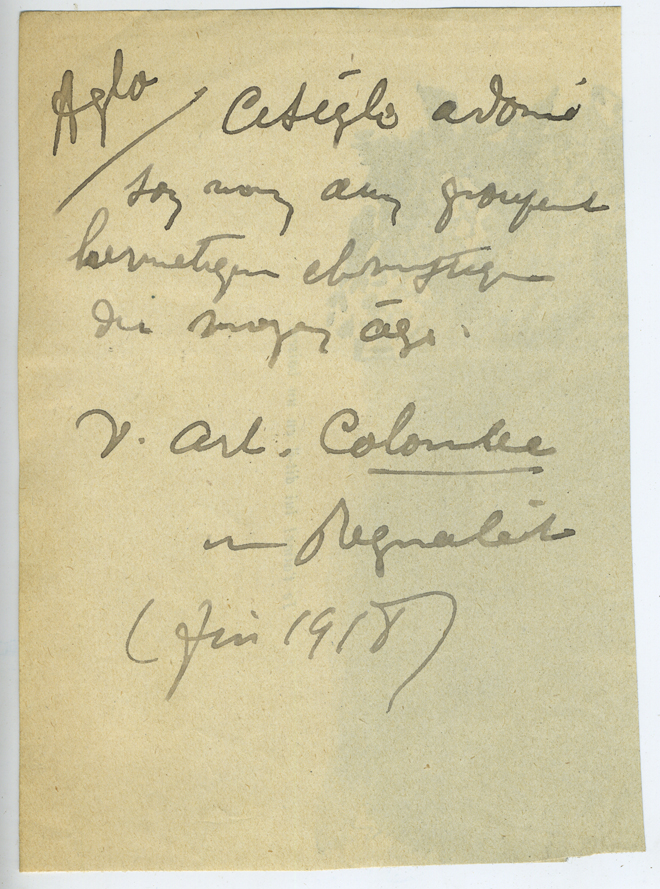 Aglo
Ce sigle a donné
son nom au groupement
hermétique christique
du moyen âge.
V. Art. Colombe
in Regnabit
(fin 1918)